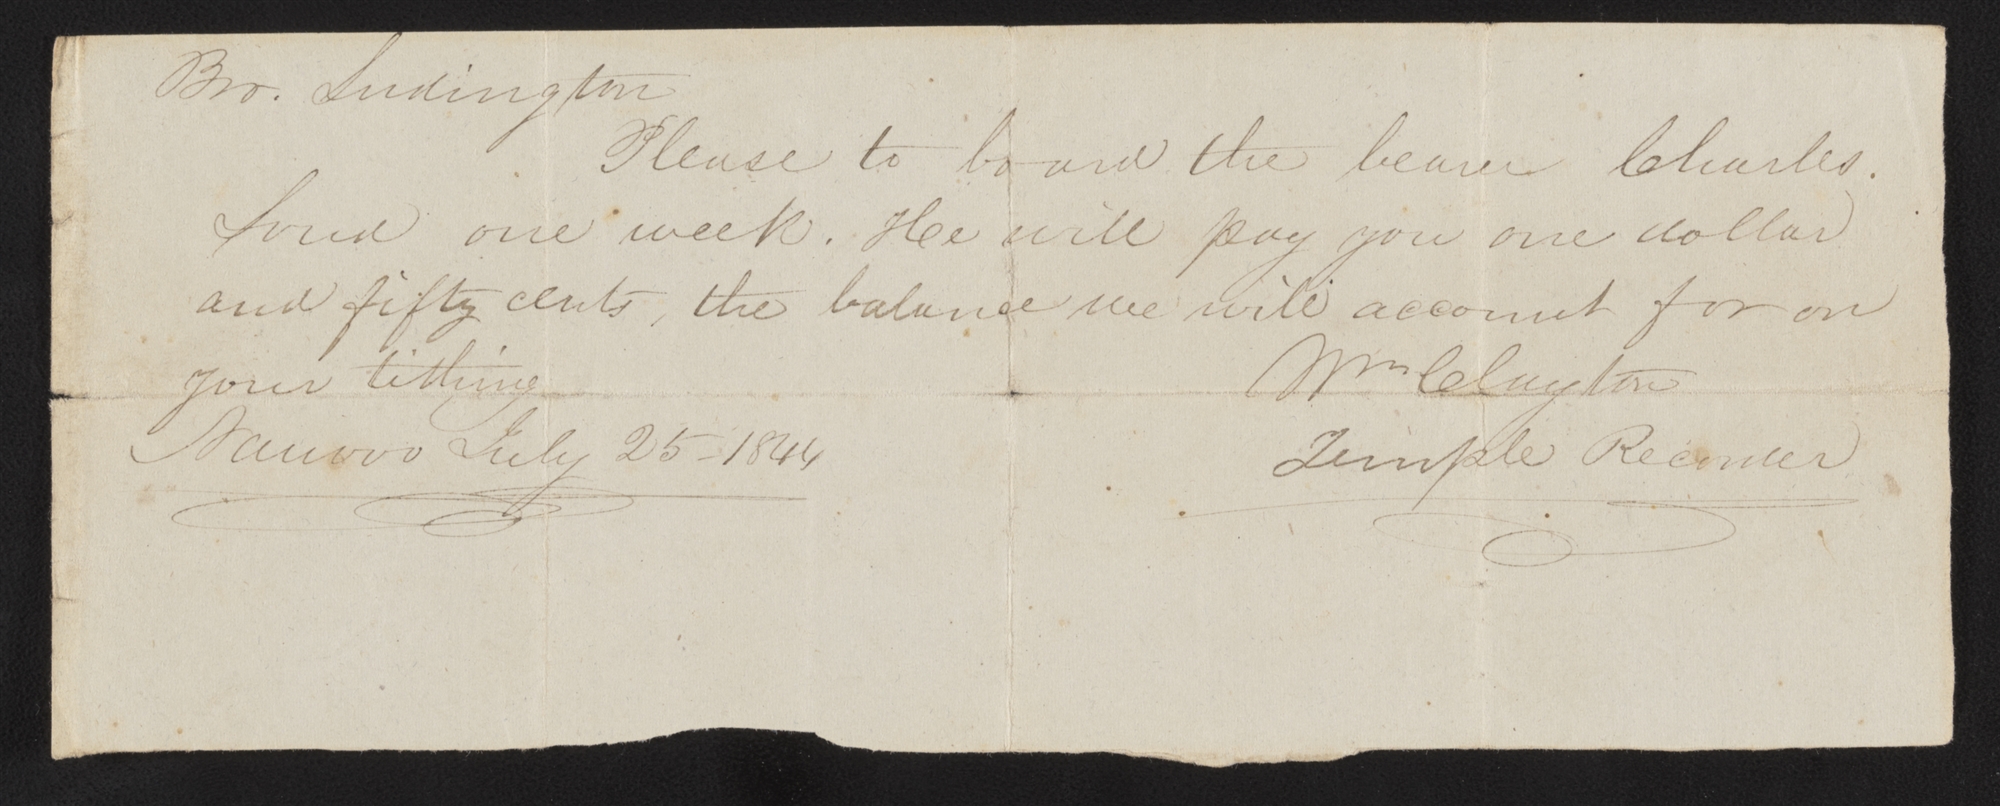 Bro. Ludington
Please to board the bearer Charles.
Loud one week. He will pay you one dollar
and fifty cents, the balance we will account for on
your tithing
Wm Clayton
Nauvoo July 25-1844
Temple Recorder